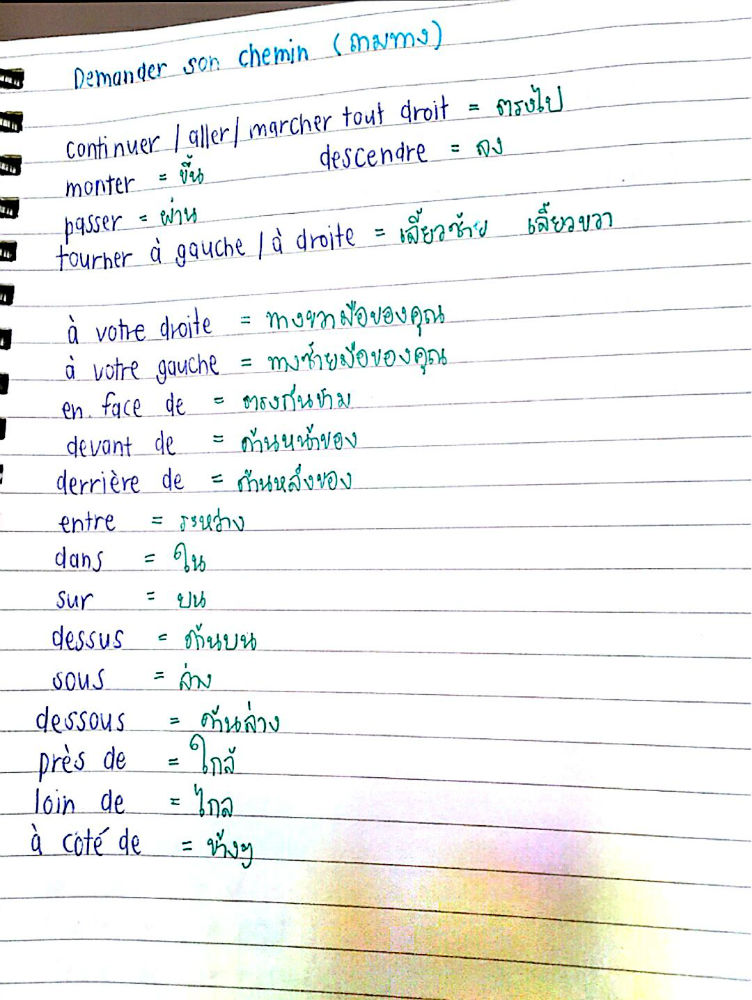 Demander son chemin (ถามทาง)
continuer / aller / marcher tout droit = ตรงไป
monter = ขึ้น descendre = ลง
passer = ผ่าน
tourner à gauche / à droite = เลี้ยวซ้าย เลี้ยวขวา
à votre droite = ทางขวามือของคุณ
à votre gauche = ทางซ้ายมือของคุณ
en face de = ตรงกันข้าม
devant de = ด้านหน้าของ
derrière de = ด้านหลังของ
entre = ระหว่าง
dans = ใน
sur = บน
dessus = ด้านบน
sous = ล่าง
dessous = ด้านล่าง
près de = ใกล้
loin de = ไกล
à coté de = ข้างๆ